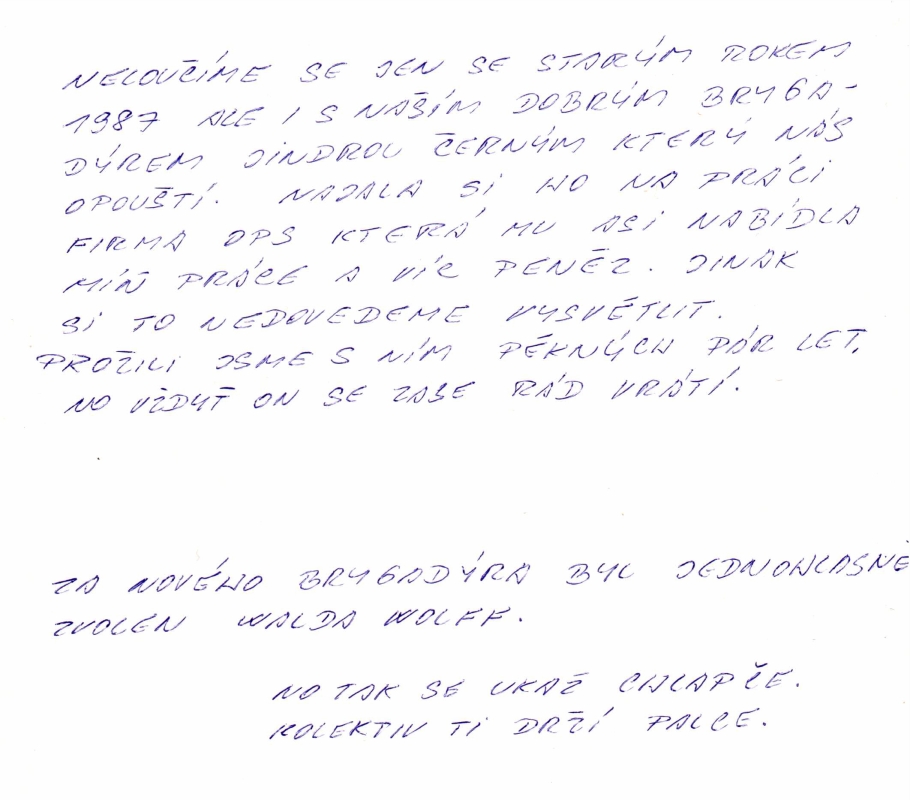 NELOUČÍME SE JEN SE STARÝM ROKEM
1987 ALE I S NAŠÍM DOBRÝM BRYGA-
DÝREM JINDROU ČERNÝM KTERÝ NÁS
OPOUŠTÍ. NAJALA SI HO NA PRÁCI
FIRMA OPS KTERÁ MU ASI NABÍDLA
MÍŇ PRÁCE A VÍC PENĚZ. JINAK
SI TO NEDOVEDEME VYSVĚTLIT.
PROŽILI JSME S NÍM PĚKNÝCH PÁR LET.
NO VŽDYŤ ON SE ZASE RÁD VRÁTÍ.
ZA NOVÉHO BRYGADÝRA BYL JEDNOHLASNĚ
ZVOLEN WALDA WOLFF.
NO TAK SE UKAŽ CHLAPČE.
KOLEKTIV TI DRŽÍ PALCE.